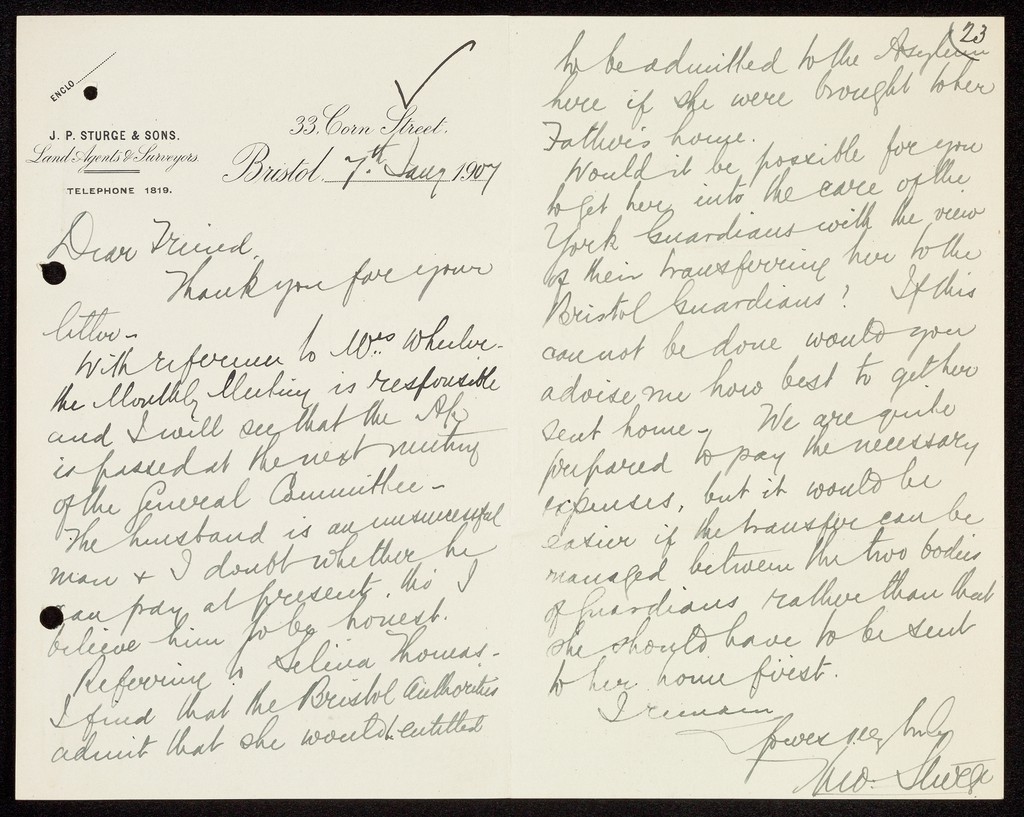 ENCLO
J. P. STURGE & SONS.
Land Agents & Surveyors.
TELEPHONE 1819.
33, Corn Street.
Bristol, 7th Jany 1907
Dear Friend,
Thank you for your
letter -
With reference to Mrs Wheeler -
the Monthly Meeting is responsible
and I will see that the A/c
is passed at the next meeting
of the General Committee -
The husband is an unsuccessful
man & I doubt whether he
can pay at present, tho' I
believe him to be honest.
Referring to Selina Thomas -
I find that the Bristol Authorities
admit that she would be entitled
23
to be admitted to the Asylum
here if she were brought to her
Father's home.
Would it be possible for you
to get her into the care of the
York Guardians with the view
of their transferring her to the
Bristol Guardians? If this
cannot be done would you
advise me how best to get her
sent home - We are quite
prepared to pay the necessary
expenses, but it would be
easier if the transfer can be
managed between the two bodies
of Guardians rather than that
she should have to be sent
to her home first.
I remain
yours very truly
Sturge